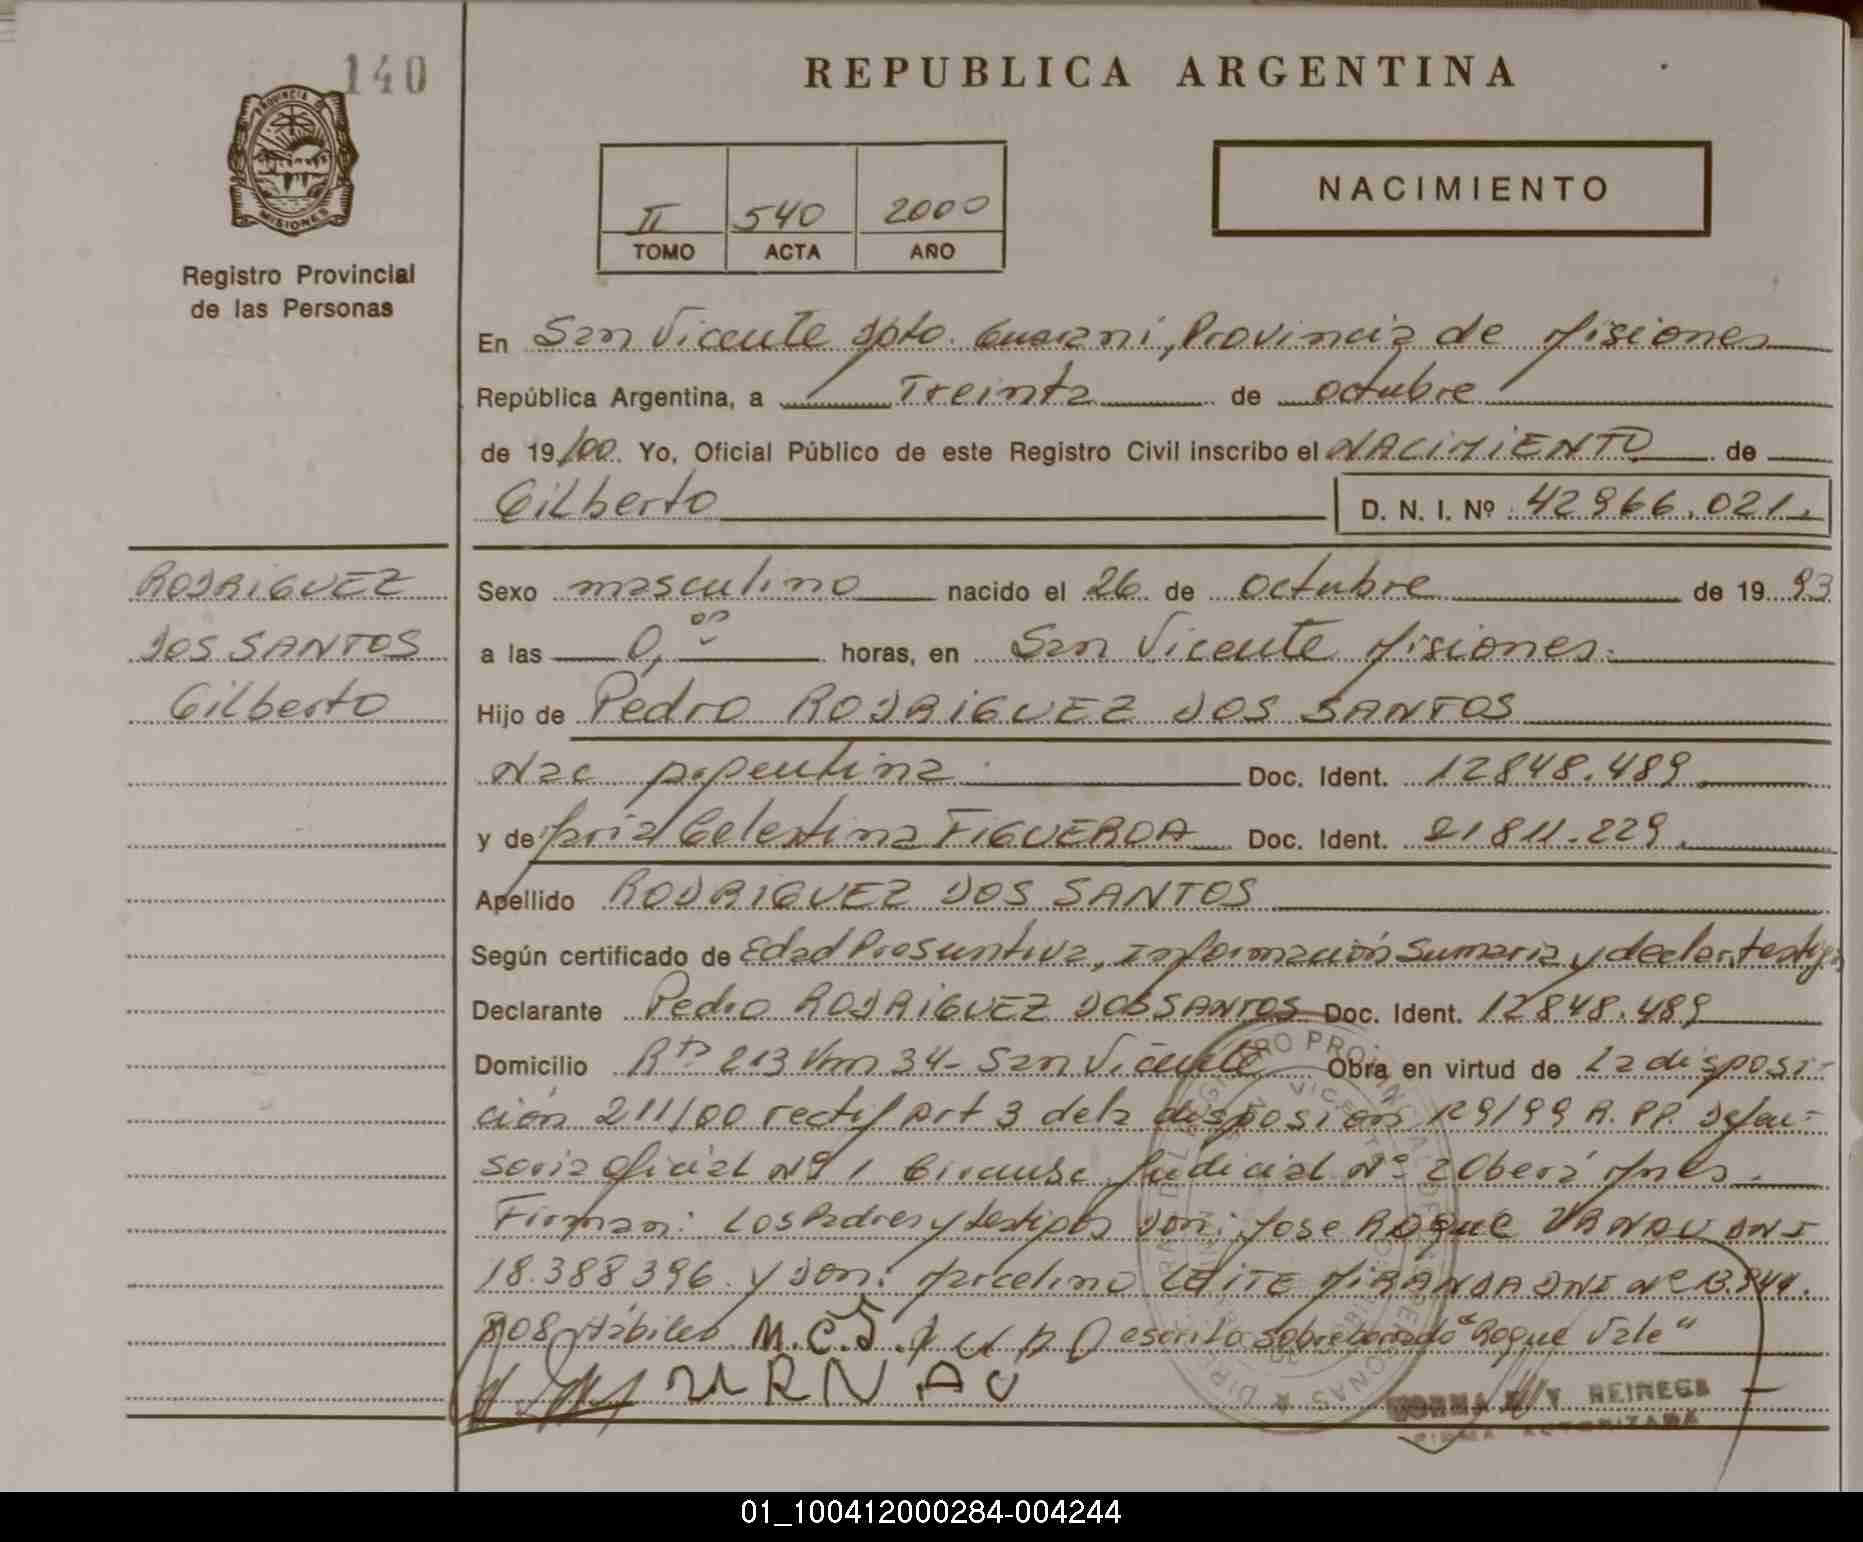 140
REPUBLICA ARGENTINA
PROVINCIA DE
MISIONES
Registro Provincial
de las Personas
II 540 2000
TOMO ACTA AÑO
NACIMIENTO
En San Vicente Dpto. Guarani, Provincia de Misiones
República Argentina, a Treinta de octubre
de 19/00. Yo, Oficial Público de este Registro Civil inscribo el NACIMIENTO de
Gilberto D. N. I. Nº 42966.021.
RODRIGUEZ
DOS SANTOS
Gilberto
Sexo masculino nacido el 26 de octubre de 19 93
a las 0,00 horas, en San Vicente Misiones.
Hijo de Pedro RODRIGUEZ DOS SANTOS
Nac Argentina Doc. Ident. 12848.489
y de Maria Celestina FIGUEROA Doc. Ident. 21811.229.
Apellido RODRIGUEZ DOS SANTOS
Según certificado de Edad Presuntiva, Información Sumaria y declar. testigos
Declarante Pedro RODRIGUEZ DOS SANTOS Doc. Ident. 12848.489
Domicilio Rta 213 Km 34- San Vicente Obra en virtud de La disposi-
ción 211/00 rectif Art 3 dela disposición 129/99 R.PP. Defen-
soria Oficial Nº 1 Circunsc. Judicial Nº 2 Oberá Mnes.
Firman: Los Padres y testigos Don: Jose Roque URNAU DNI
18.388396. y Don: Marcelino LEITE MIRANDA DNI Nº 13.844.
808 Hábiles M.C.J. escrito sobreborrado "Roque Vale"
URNAU
REINECK
FIRMA AUTORIZADA
01_100412000284-004244